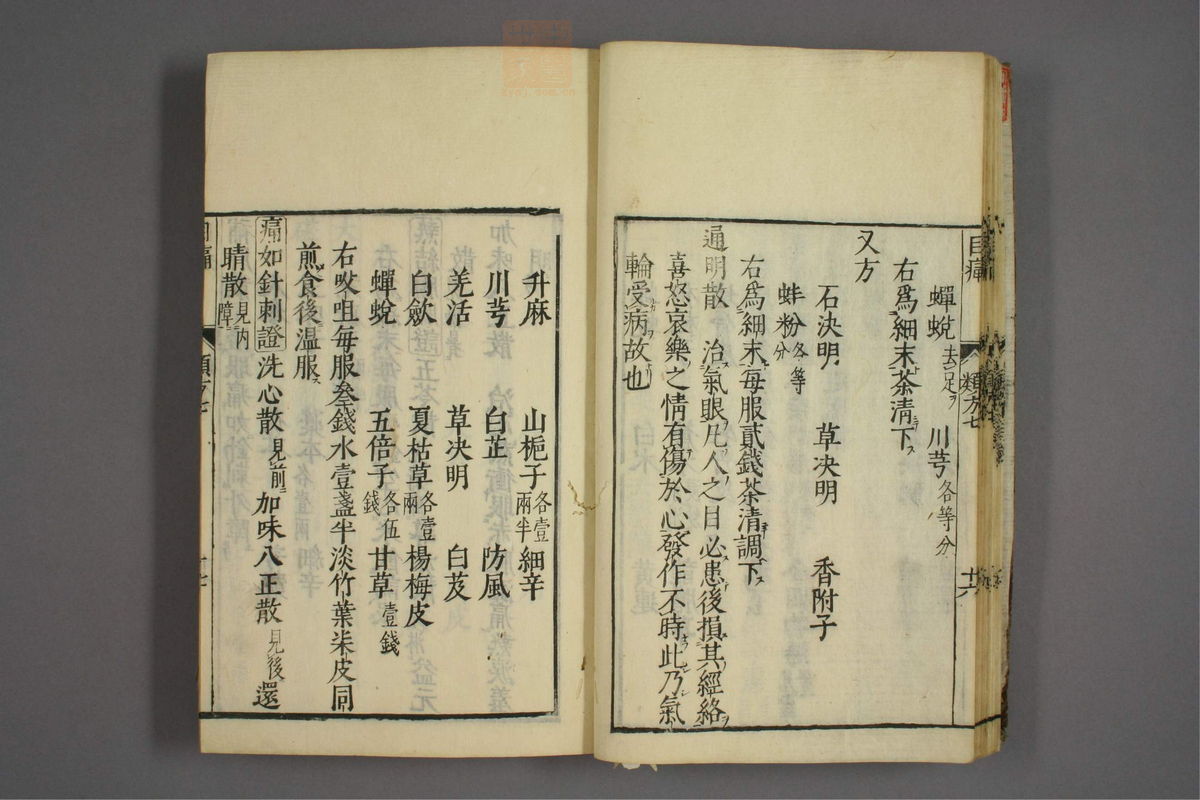 目痛
類方七
十六
蟬蛻去足 川芎各等分
右爲細末茶清下
又方
石決明 草决明 香附子
蚌粉各等分
右爲細末每服貳錢茶清調下
通明散 治氣眼凡人之目必患後損其經絡
喜怒哀樂之情有傷於心發作不時此乃氣
輪受病故也
升麻 山梔子各壹兩半 細辛
川芎 白芷 防風
羌活 草决明 白芨
白歛 夏枯草各壹兩 楊梅皮
蟬蛻 五倍子各伍錢 甘草壹錢
右㕮咀每服叁錢水壹盞半淡竹葉柒皮同
煎食後温服
痛如針刺證 洗心散見前 加味八正散見後 還
睛散見內障